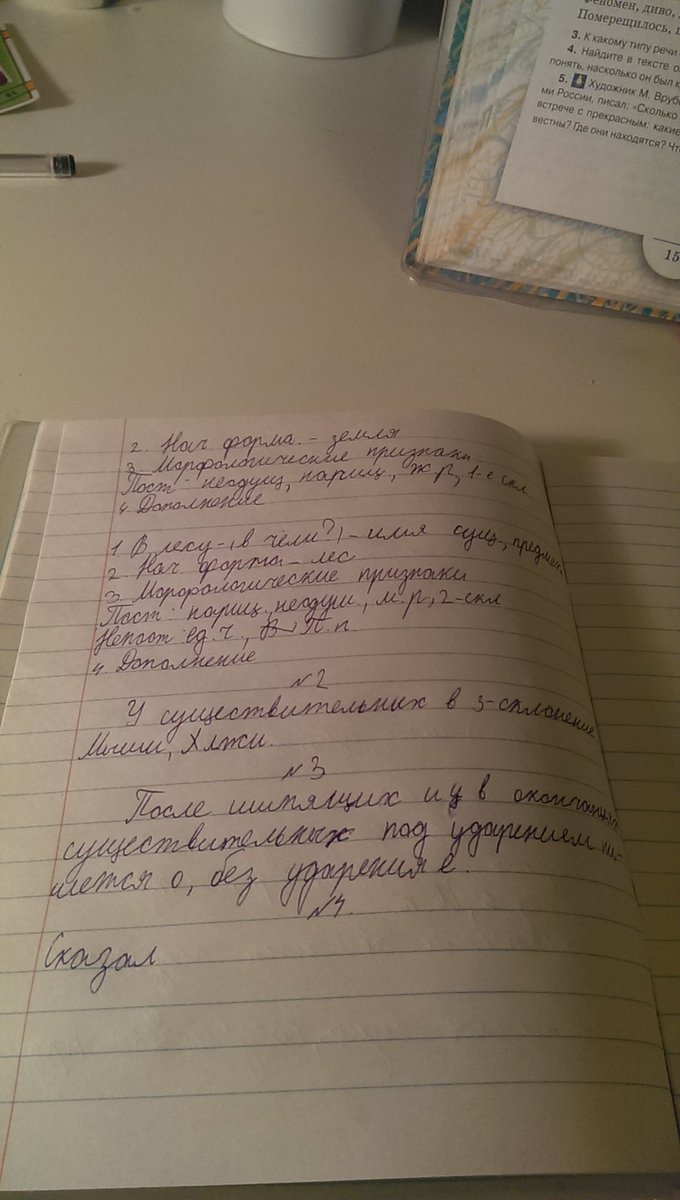 феномен, диво,
Померещилось,
3. К какому типу речи
4. Найдите в тексте
понять, насколько он был
5. 4 Художник М. Врубе
ми России, писал: «Сколько
встрече с прекрасным: какие
вестны? Где они находятся? Чт
15
2. Нач. форма - земля
3. Морфологические признаки:
Пост: неодуш, нариц., ж.р, 1-е скл
4. Дополнение
1 В лесу - (в чём?) - имя сущ., предмет.
2. Нач форма - лес
3. Морфологические признаки
Пост: нариц., неодуш., м.р, 2-скл
Непост ед. ч., П.п
4. Дополнение
№2
У существительных в 3-склонение
Мыши,
№3
После шипящих и ц в окончаниях
существительных под ударением пи-
шется о, без ударения е.
№4.
Сказал